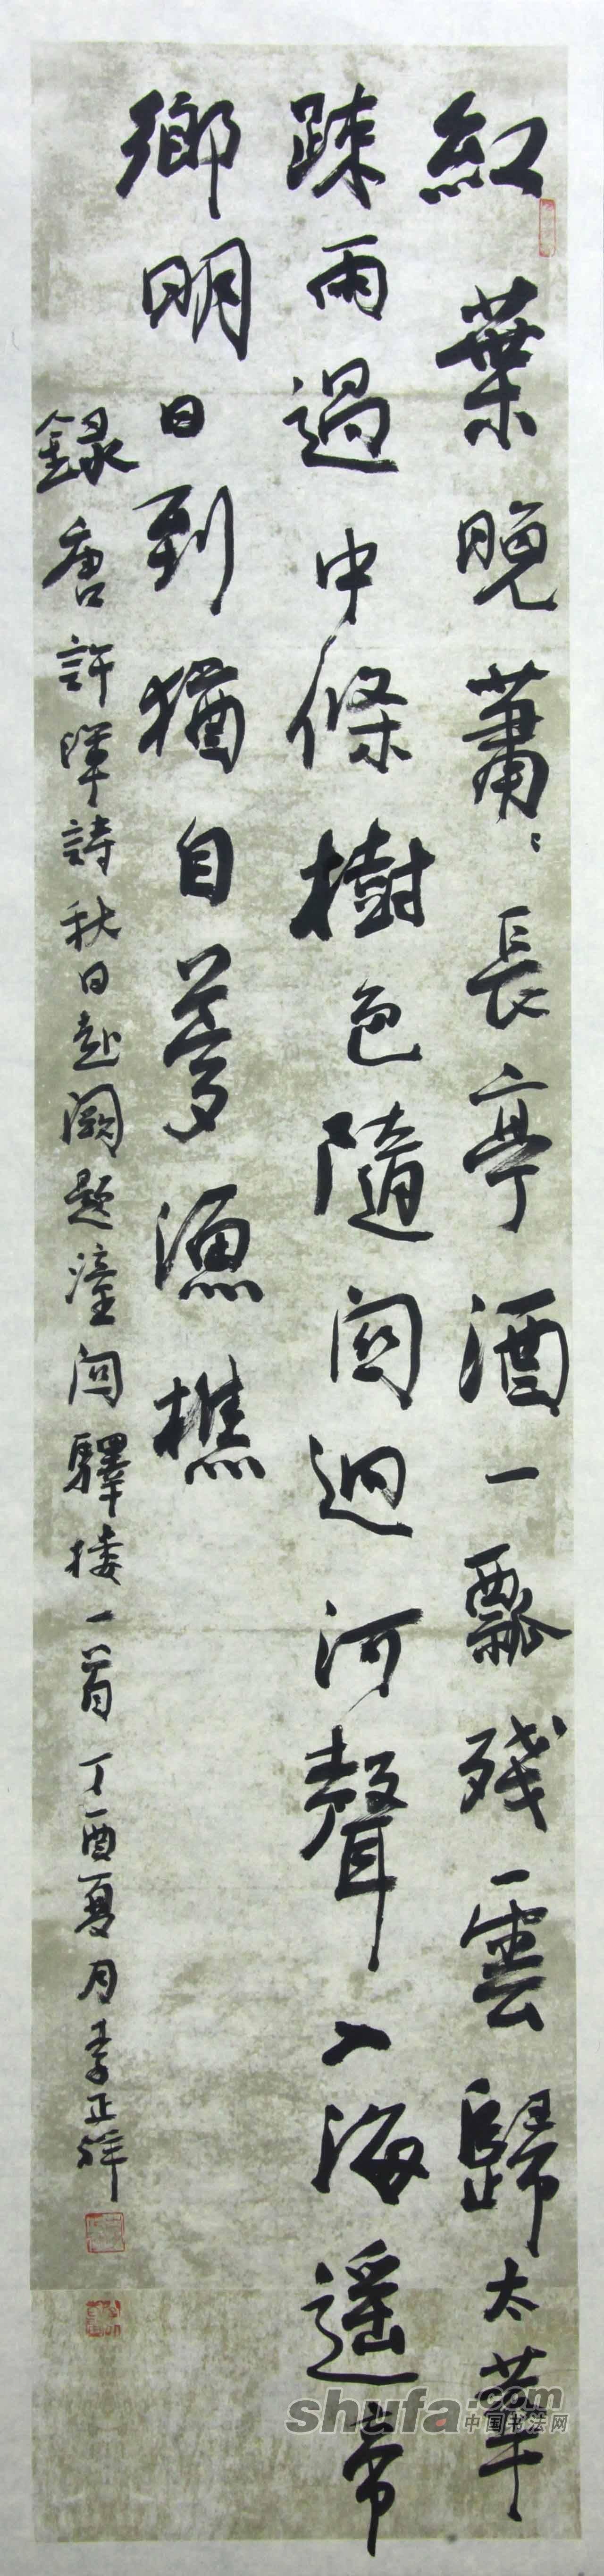 紅葉晚蕭〻長亭酒一瓢殘雲歸太華
疎雨過中條樹色隨関迥河聲入海遥帝
鄉明日到猶自夢漁樵
錄唐許渾詩秋日赴闕題潼関驛楼一首丁酉夏月李正祥
shufa.com
中国书法网